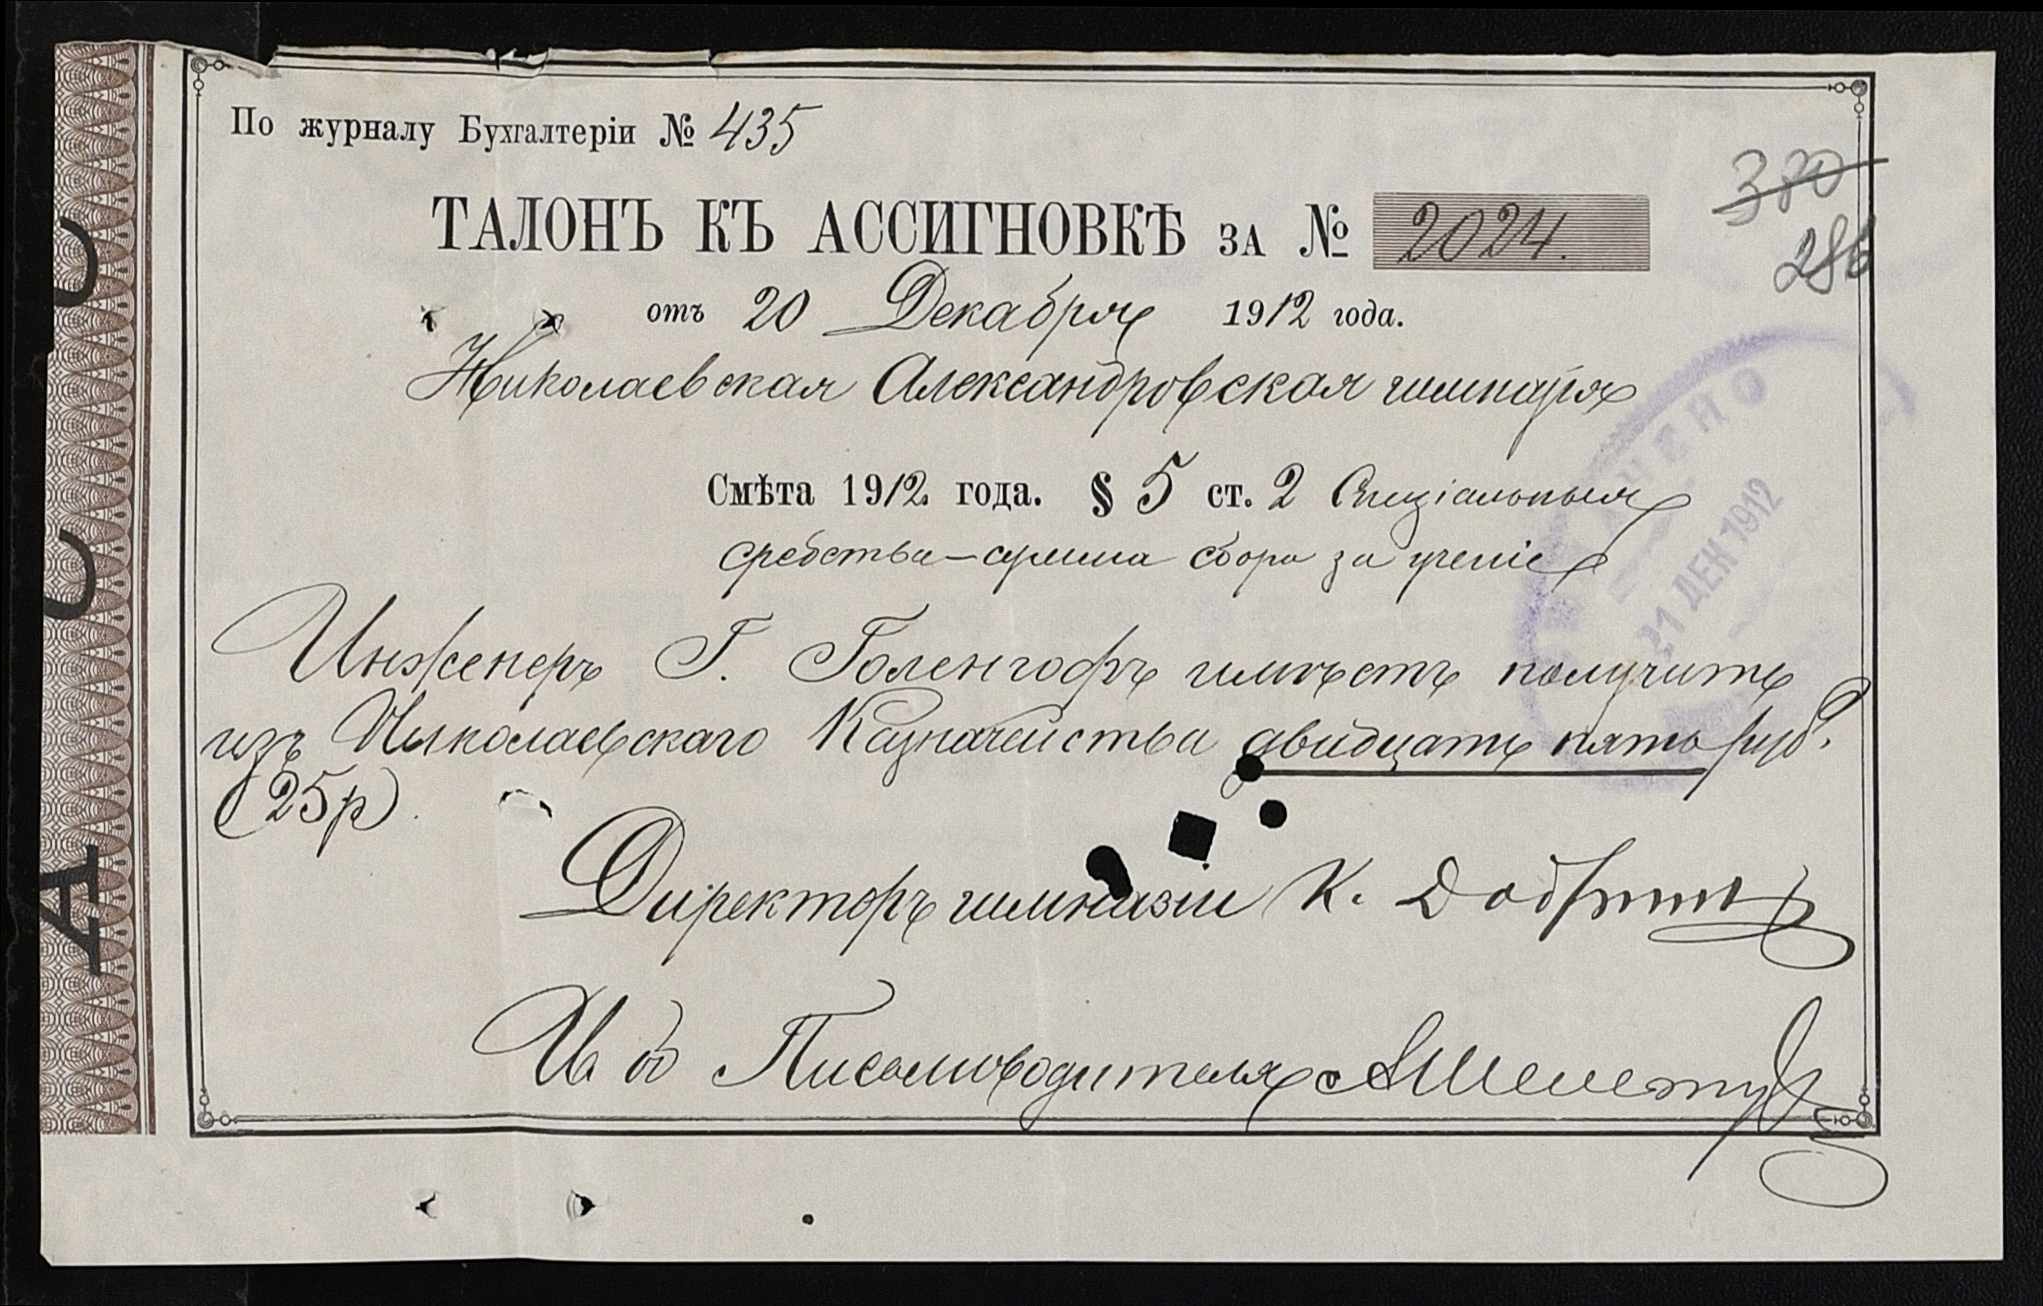 По журналу Бухгалтеріи № 435
ТАЛОНЪ КЪ АССИГНОВКѢ ЗА № 2024.
370
286
отъ 20 Декабря 1912 года.
Николаевская Александровская гимназія
Смѣта 1912 года. § 5 ст. 2 Спеціальныя
средства – сумма сбора за ученіе
21 ДЕК 1912
Инженеръ Г. Голенгофъ имѣетъ получить
изъ Николаевскаго Казначейства двадцать пять руб.
(25р)
Директоръ гимназіи К.
И об Письмоводителя
А С С